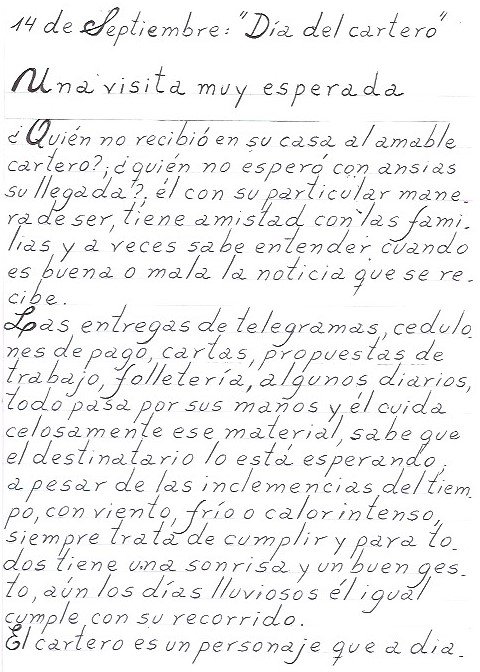 14 de Septiembre: "Día del cartero"
Una visita muy esperada
¿Quién no recibió en su casa al amable
cartero?; ¿quién no esperó con ansias
su llegada?, él con su particular mane-
ra de ser, tiene amistad con las fami-
lias y a veces sabe entender cuando
es buena o mala la noticia que se re-
cibe.
Las entregas de telegramas, cedulo-
nes de pago, cartas, propuestas de
trabajo, folletería, algunos diarios,
todo pasa por sus manos y él cuida
celosamente ese material, sabe que
el destinatario lo está esperando,
a pesar de las inclemencias del tiem-
po, con viento, frío o calor intenso,
siempre trata de cumplir y para to-
dos tiene una sonrisa y un buen ges-
to, aún los días lluviosos él igual
cumple con su recorrido.
El cartero es un personaje que a dia-